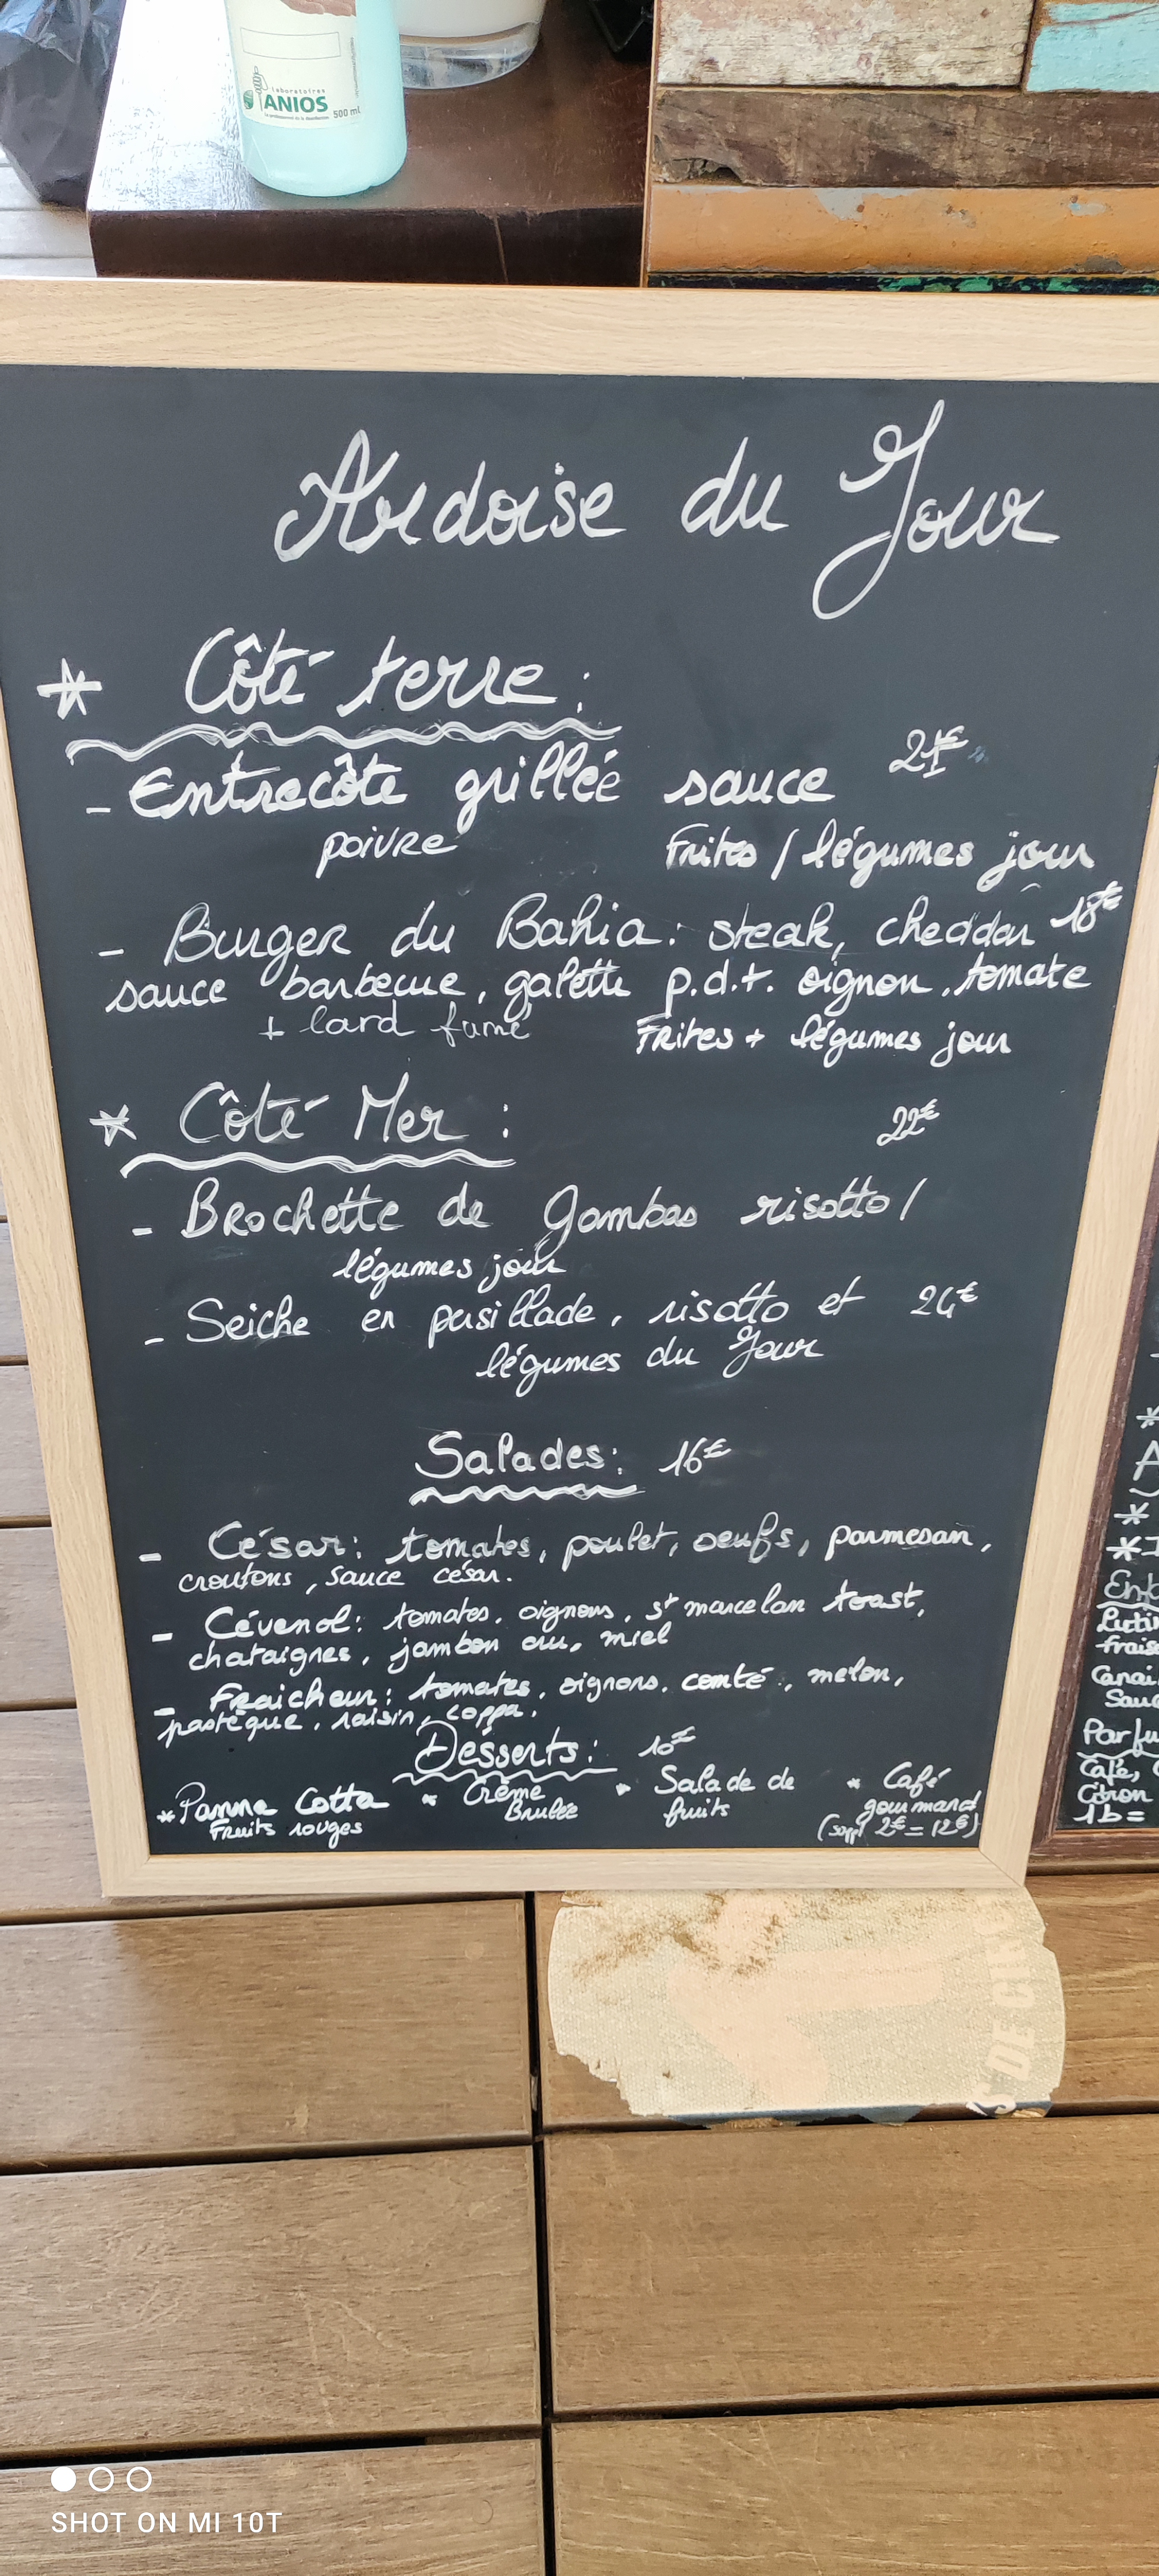 laboratoires
ANIOS
500 ml
Ardoise du Jour
* Côté terre :
- Entrecôte grillée sauce 21€
poivre Frites / légumes jour
- Burger du Bahia : steak, cheddar 18€
sauce barbecue, galette p.d.t. oignon, tomate
+ lard fumé Frites + légumes jour
* Côté Mer : 22€
- Brochette de Gambas risotto /
légumes jour
- Seiche en persillade, risotto et 24€
légumes du Jour
Salades : 16€
- César : tomates, poulet, oeufs, parmesan,
croutons, sauce césar.
- Cévenol : tomates, oignons, st marcelan toast,
chataignes, jambon cru, miel
- Fraicheur : tomates, oignons, comté, melon,
pastèque, raisin, coppa.
Desserts : 10€
* Panna Cotta * Crème * Salade de * Café
Fruits rouges Brulée fruits gourmand
(suppl 2€ = 12€)
*
A
*
*
Parfu
Café,
Citron
1b =
S DE CIRE
SHOT ON MI 10T